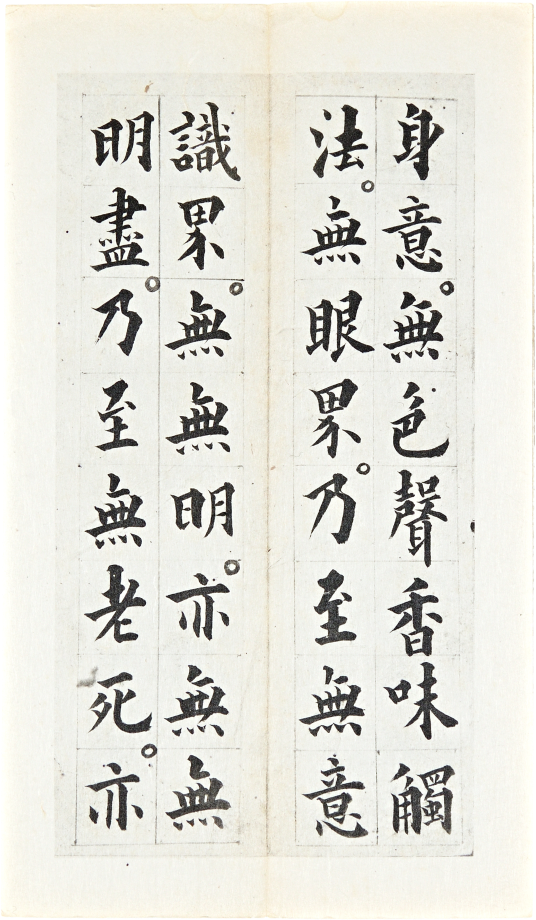 身意。無色聲香味觸
法。無眼界。乃至無意
識界。無無明。亦無無
明盡。乃至無老死。亦